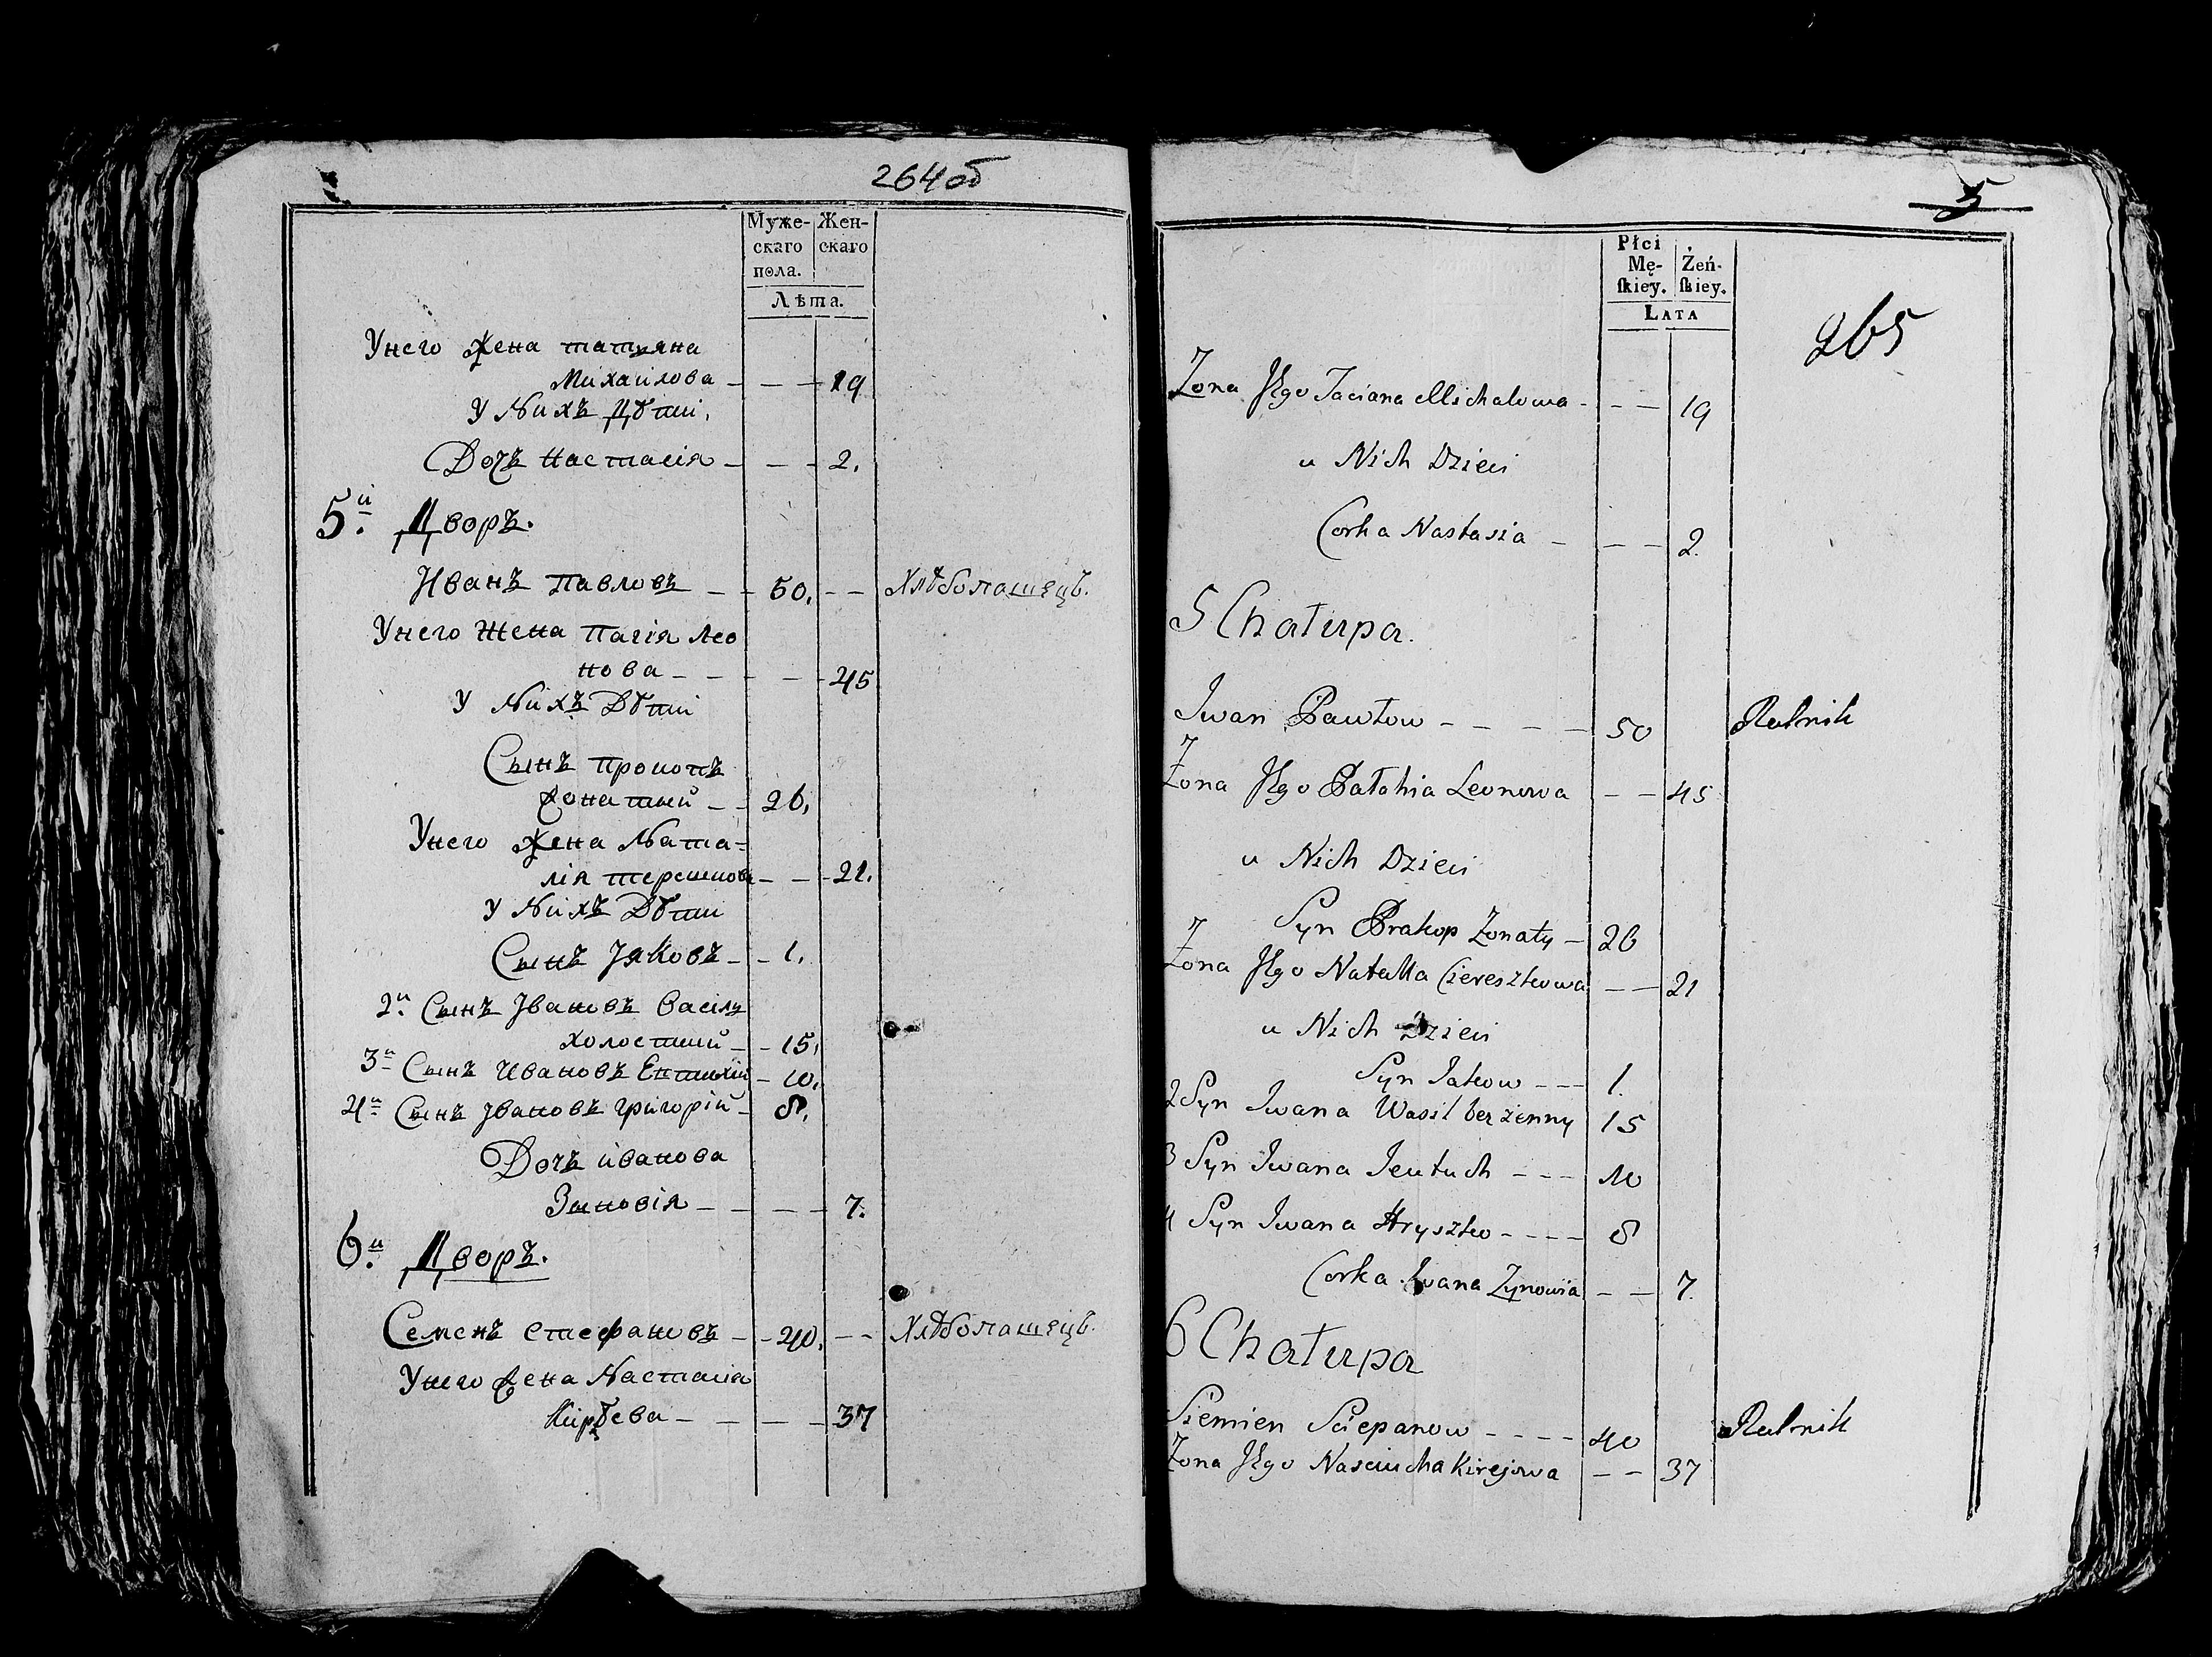 264об
Муже- Жен-
скаго скаго
пола.
Лѣта.
Унего жена татьяна
Михаилова - - - 19
У Нихъ Дѣти,
Дочь Настасія - - - 2.
5й. Дворъ.
Иванъ Павловъ - - 50, - - Хлѣбопашецъ.
Унего жена Пагія Лео
нова - - - - - 45
У Нихъ Дѣти
Сынъ Прокопъ
Жонатый - - 26,
Унего жена Ната-
лія терешкова - - - 21.
У Нихъ Дѣти
Сынъ Јяковъ - - 1.
2й Сынъ Јвановъ Василь
холостый - - 15,
3й Сынъ Ивановъ Евтихій - 10,
4й Сынъ Јвановъ григорій - 8,
Дочь иванова
Зиновія - - - - 7.
6й. Дворъ.
Семенъ стефановъ - - 40, - - Хлѣбопашецъ.
Унего жена Настасія
Кирѣева - - - - 37
5
Płci
Mę- Żeń-
ſkiey. ſkiey.
LATA
265
Zona Jego Taciana Michalowa - - - 19
u Nich Dzieci
Corka Nastasia - - - 2.
5 Chałupa.
Iwan Pawłow - - - - 50 Rolnik
Zona Jego Pałahia Leonowa - - 45
u Nich Dzieci
Syn Prakop Zonaty - 26
Zona Jego Natalka Ciereszkowa - - 21
u Nich Dzieci
Syn Jakow - - - 1.
2 Syn Iwana Wasil berzenny 15
3 Syn Iwana Jeutuch - - - 10
4 Syn Iwana Hryszko - - - - 8
Corka Iwana Zynowia - - 7.
6 Chałupa
Siemien Sciepanow - - - - 40 Rolnik
Zona Jego Nasciucha Kirejowa - - 37